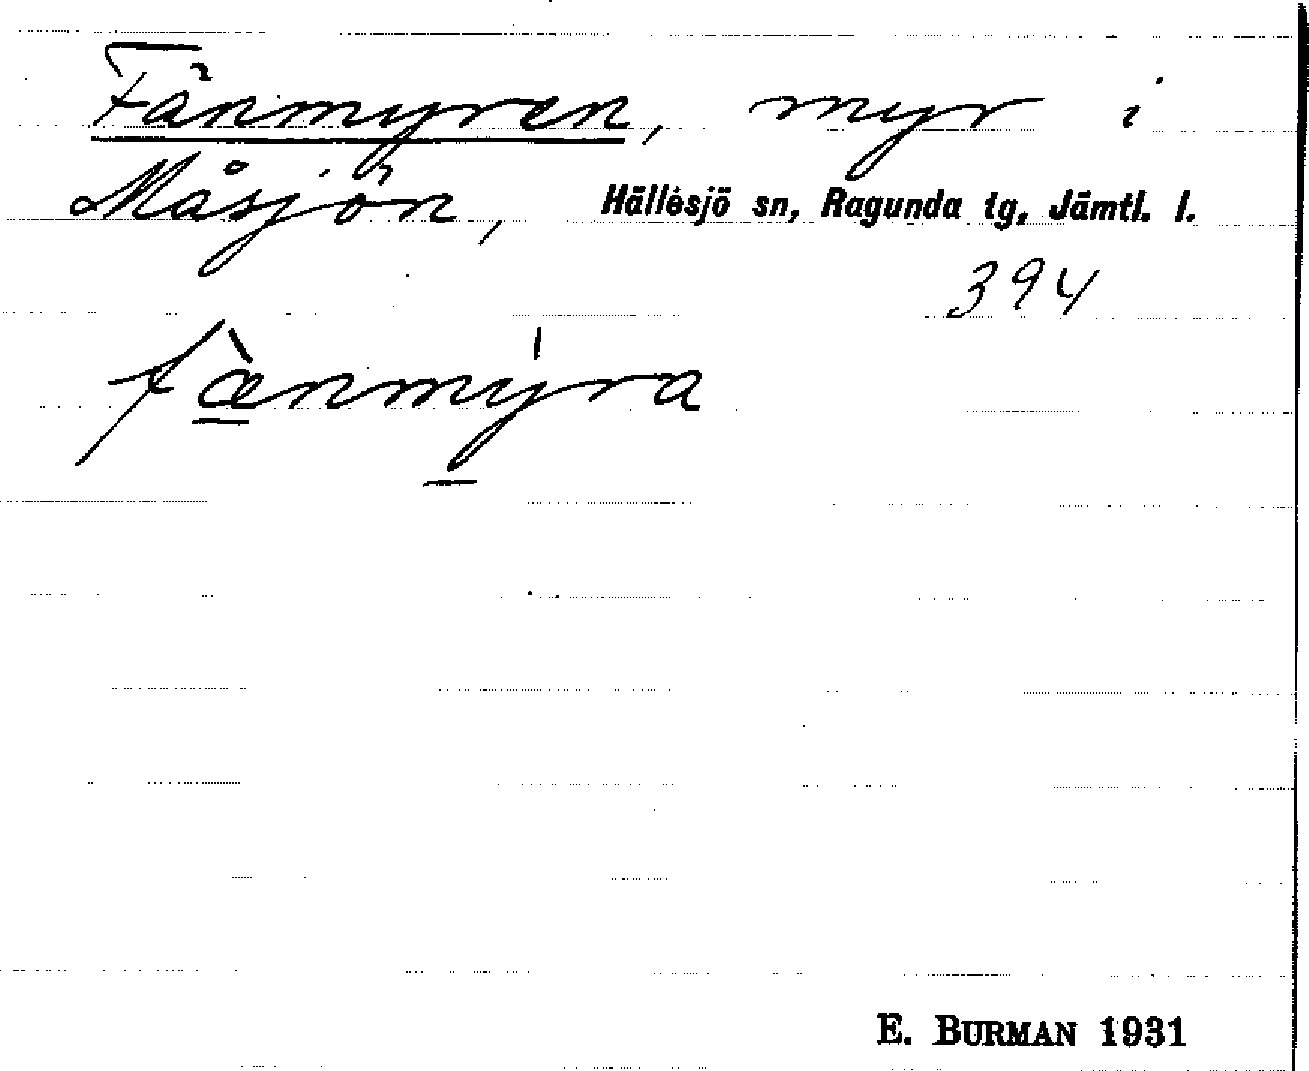 Fänmyren, myr i
Måsjön, Hällesjö sn, Ragunda tg, Jämtl. l.
394
fæ̀nmýra
E. BURMAN 1931